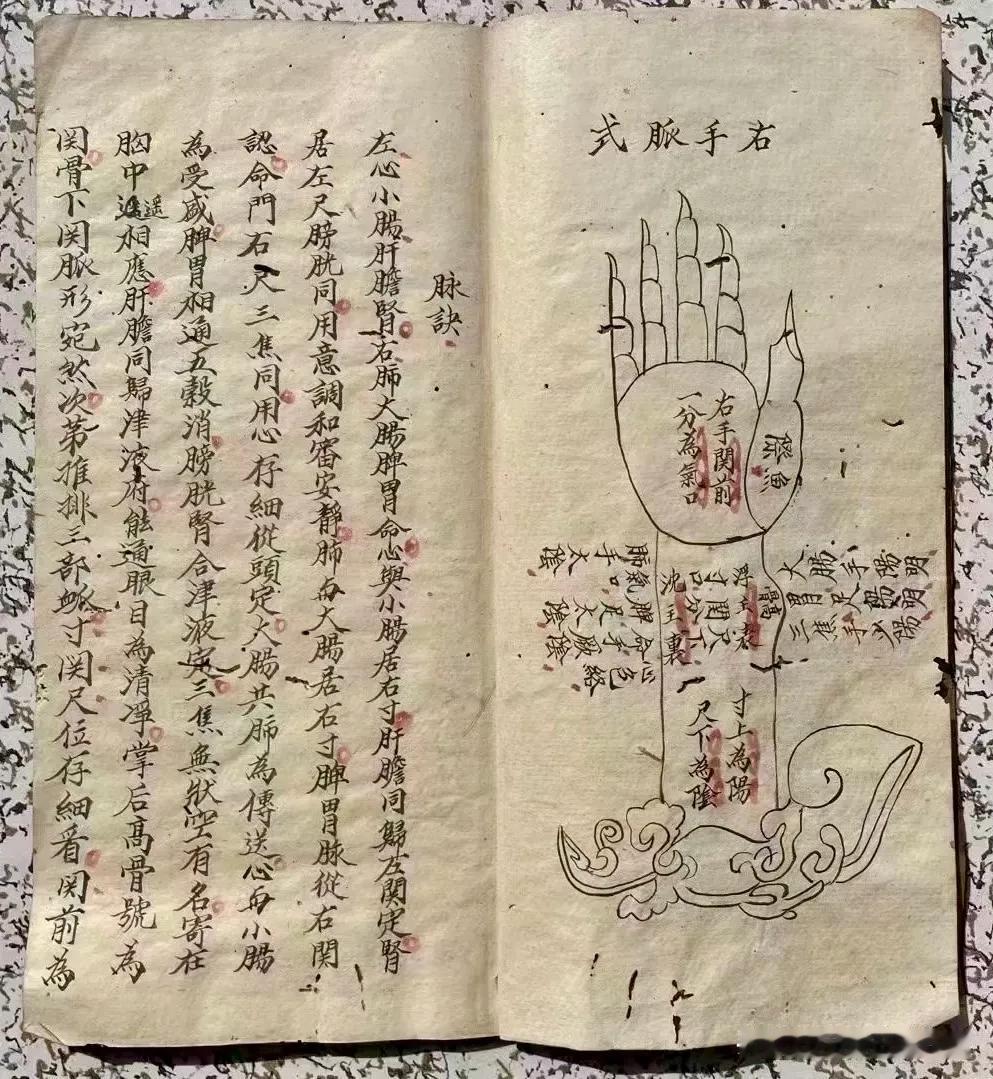 右手脈式
右手関前
一分為氣口
魚際
大腸手陽明
胃足陽明
三焦手少陽
寸上為陽
尺下為陰
脉訣
左心小腸肝膽腎右肺大腸脾胃命心與小腸居右寸肝膽同歸左関定腎
居左尺膀胱同用意調和審安靜肺与大腸居右寸脾胃脉從右関
認命門右尺三焦同用心存細從頭定大腸共肺為傳送心与小腸
為受盛脾胃相通五穀消膀胱腎合津液定三焦無狀空有名寄在
胸中遥相應肝膽同歸津液府能通眼目為清凈掌后高骨號為
関骨下関脈形宛然次第推排三部脈寸関尺位存細看関前為